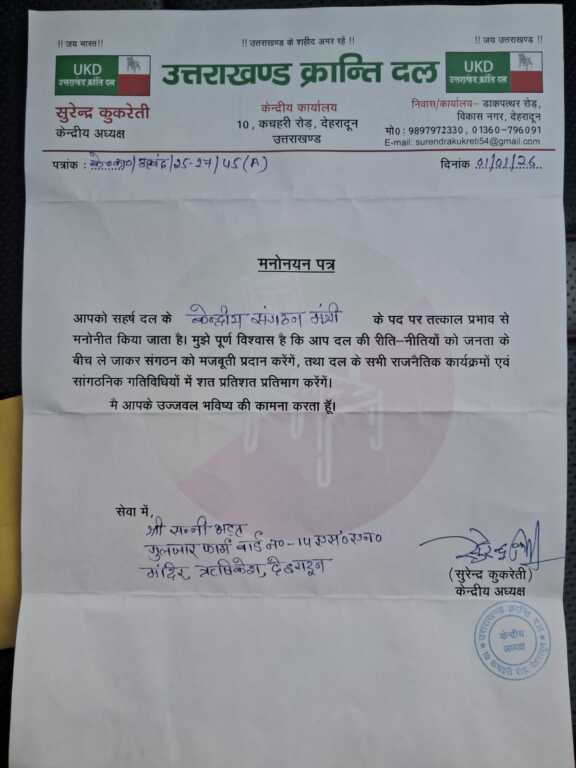 !! जय भारत!! !! उत्तराखण्ड के शहीद अमर रहे !! !! जय उत्तराखण्ड !!
UKD
उत्तराखण्ड क्रांति दल
उत्तराखण्ड क्रान्ति दल
UKD
उत्तराखण्ड क्रांति दल
सुरेन्द्र कुकरेती
केन्दीय अध्यक्ष
केन्दीय कार्यालय
10, कचहरी रोड़, देहरादून
उत्तराखण्ड
निवास/कार्यालय– डाकपत्थर रोड़,
विकास नगर, देहरादून
मो0 : 9897972330, 01360-796091
E-mail: surendrakukreti54@gmail.com
पत्रांक : /25-27/45(A) दिनांक 01/01/26
मनोनयन पत्र
आपको सहर्ष दल के केन्द्रीय संगठन मंत्री के पद पर तत्काल प्रभाव से
मनोनीत किया जाता है। मुझे पूर्ण विश्वास है कि आप दल की रीति–नीतियों को जनता के
बीच ले जाकर संगठन को मजबूती प्रदान करेगें, तथा दल के सभी राजनैतिक कार्यक्रमों एवं
सांगठनिक गतिविधियों में शत प्रतिशत प्रतिभाग करेगें।
मै आपके उज्जवल भविष्य की कामना करता हूँ।
सेवा में,
श्री सन्नी भट्ट
गुलजार फार्म वार्ड न०-14 एस०एन०
मंदिर, ऋषिकेश, देहरादून
(सुरेन्द्र कुकरेती)
केन्दीय अध्यक्ष
उत्तराखण्ड क्रान्ति दल
केन्दीय
अध्यक्ष